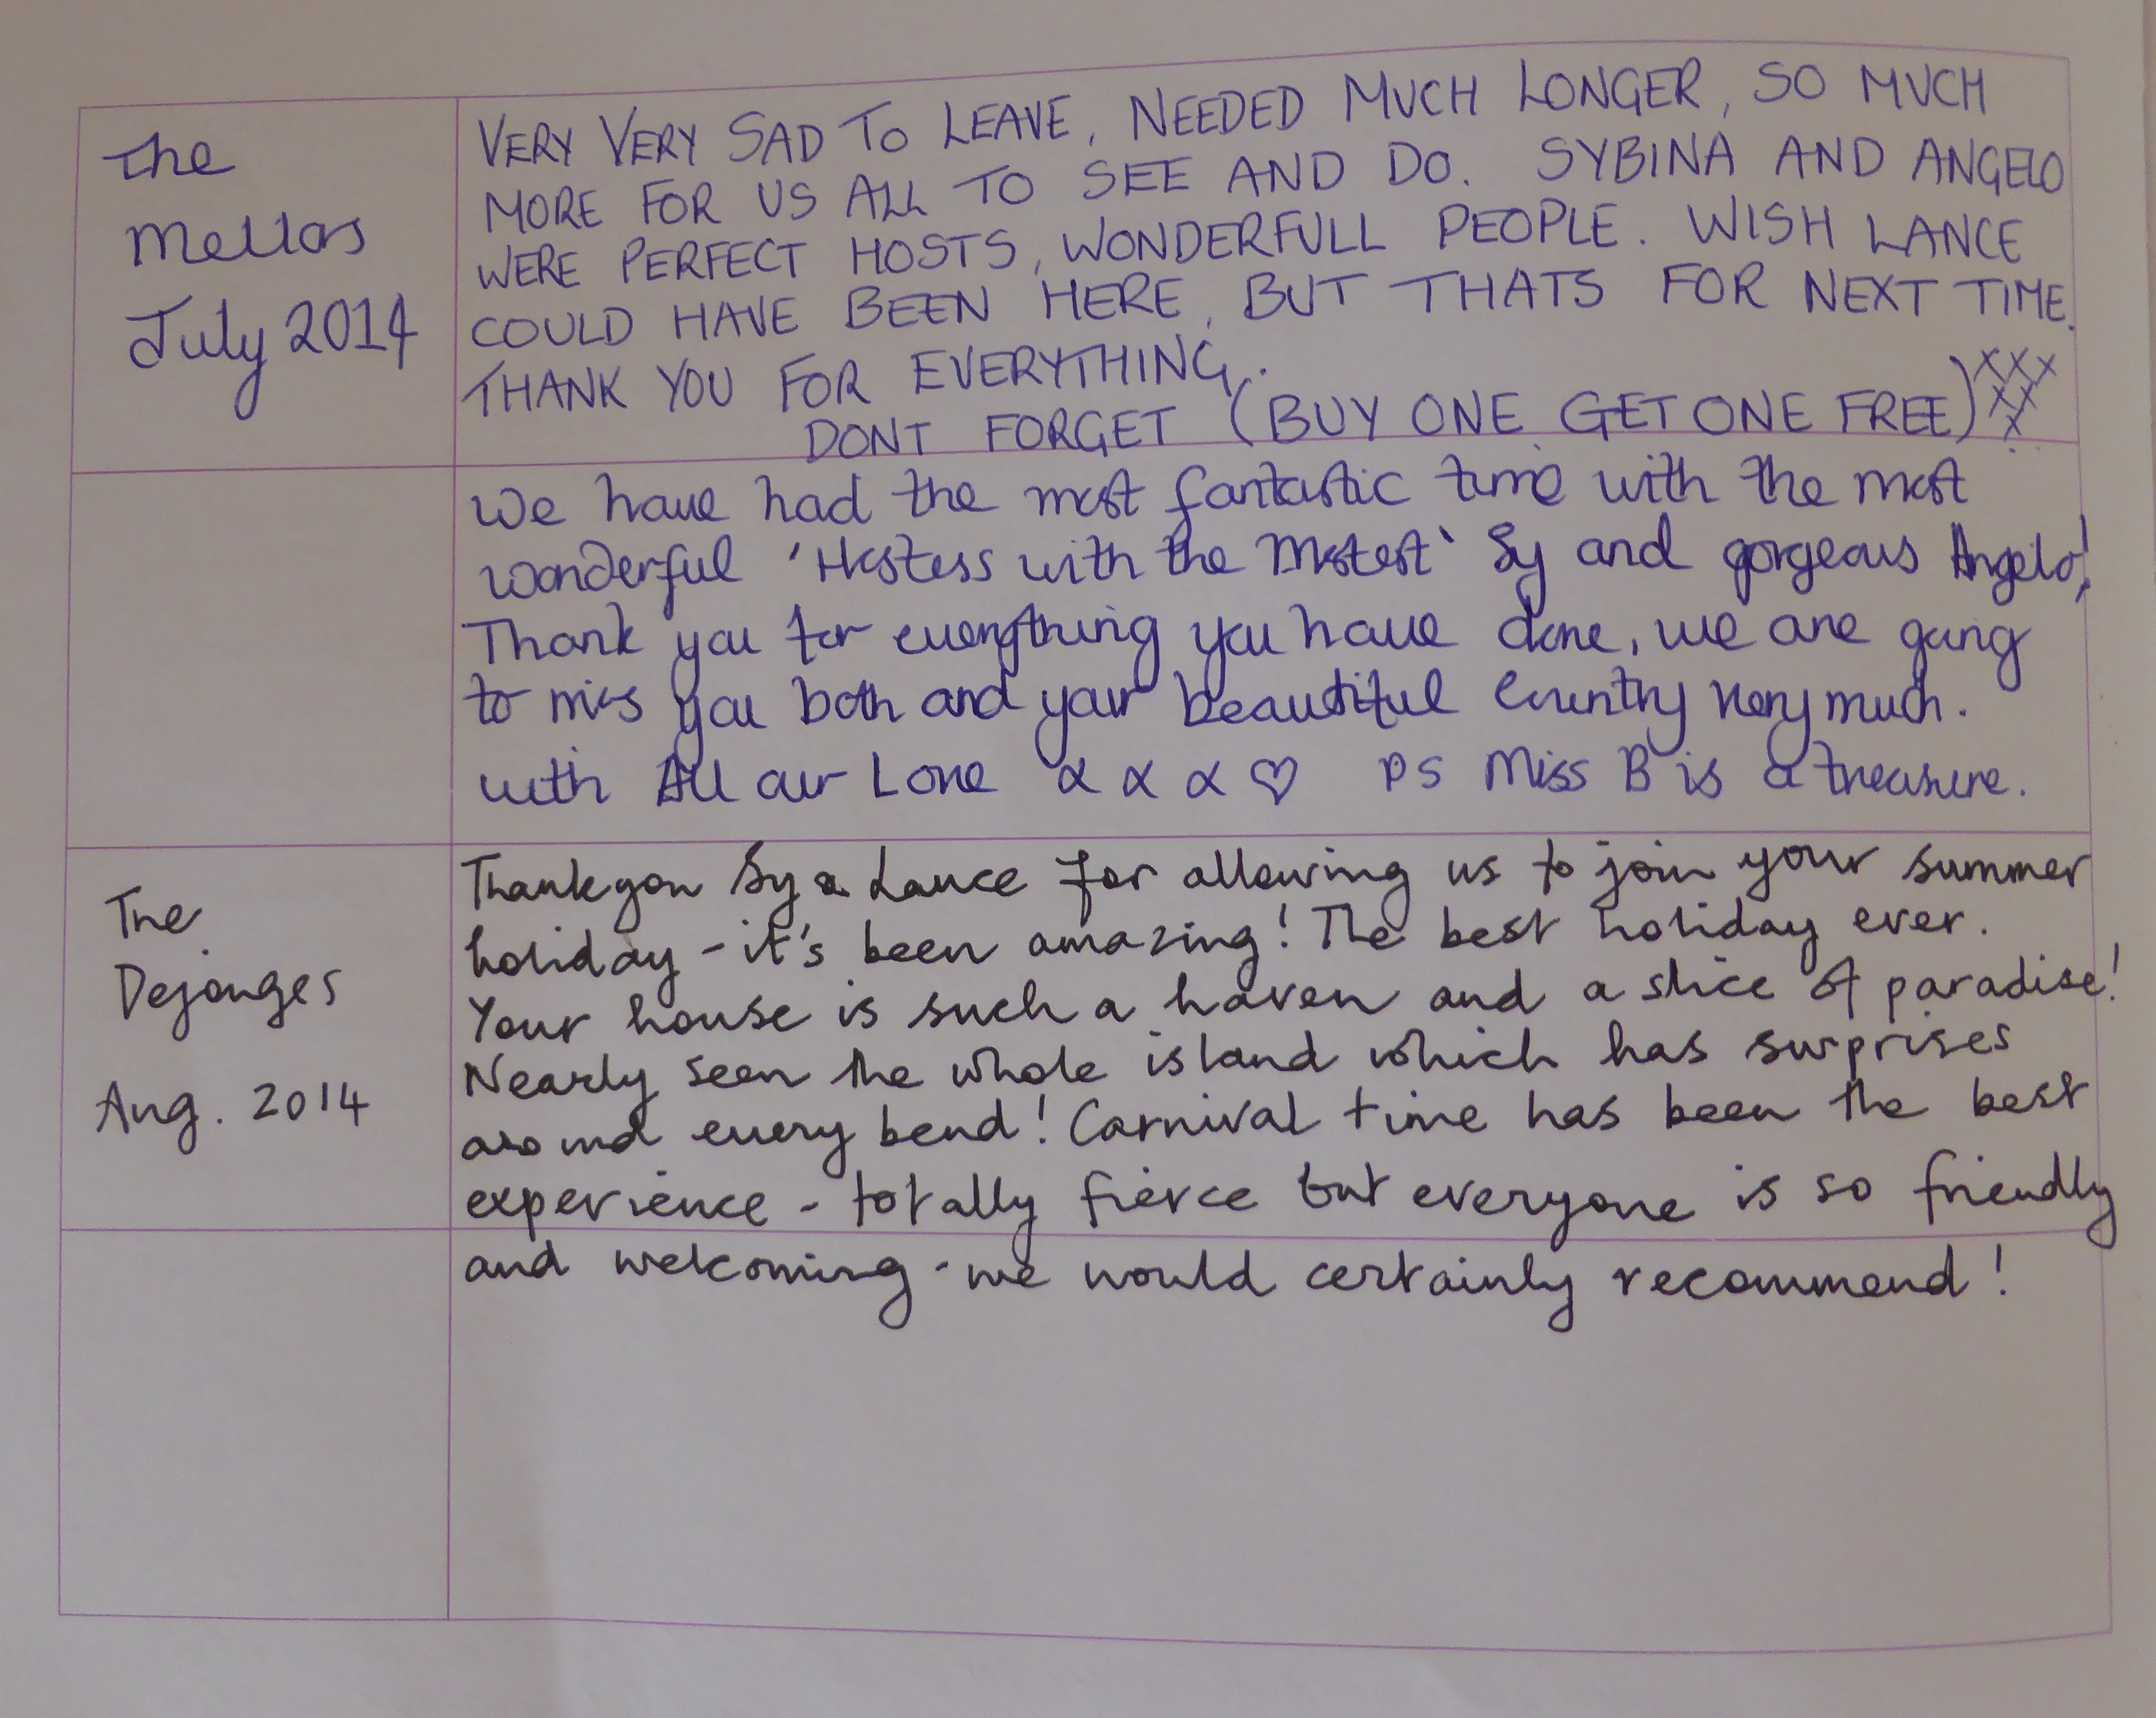 The
Mellors
July 2014
VERY VERY SAD TO LEAVE, NEEDED MUCH LONGER, SO MUCH
MORE FOR US ALL TO SEE AND DO. SYBINA AND ANGELO
WERE PERFECT HOSTS, WONDERFULL PEOPLE. WISH LANCE
COULD HAVE BEEN HERE, BUT THATS FOR NEXT TIME.
THANK YOU FOR EVERYTHING.
DONT FORGET (BUY ONE GET ONE FREE) XXX
XX
X
We have had the most fantastic time with the most
wonderful 'Hostess with the Mostest' Sy and gorgeous Angelo!
Thank you for everything you have done, we are going
to miss you both and your beautiful Country very much.
with All our Love x x x ♡ PS Miss B is a treasure.
The
Dejonges
Aug. 2014
Thank you Sy & Lance for allowing us to join your summer
holiday - it's been amazing! The best holiday ever.
Your house is such a haven and a slice of paradise!
Nearly seen the whole island which has surprises
around every bend! Carnival time has been the best
experience - totally fierce but everyone is so friendly
and welcoming - we would certainly recommend!